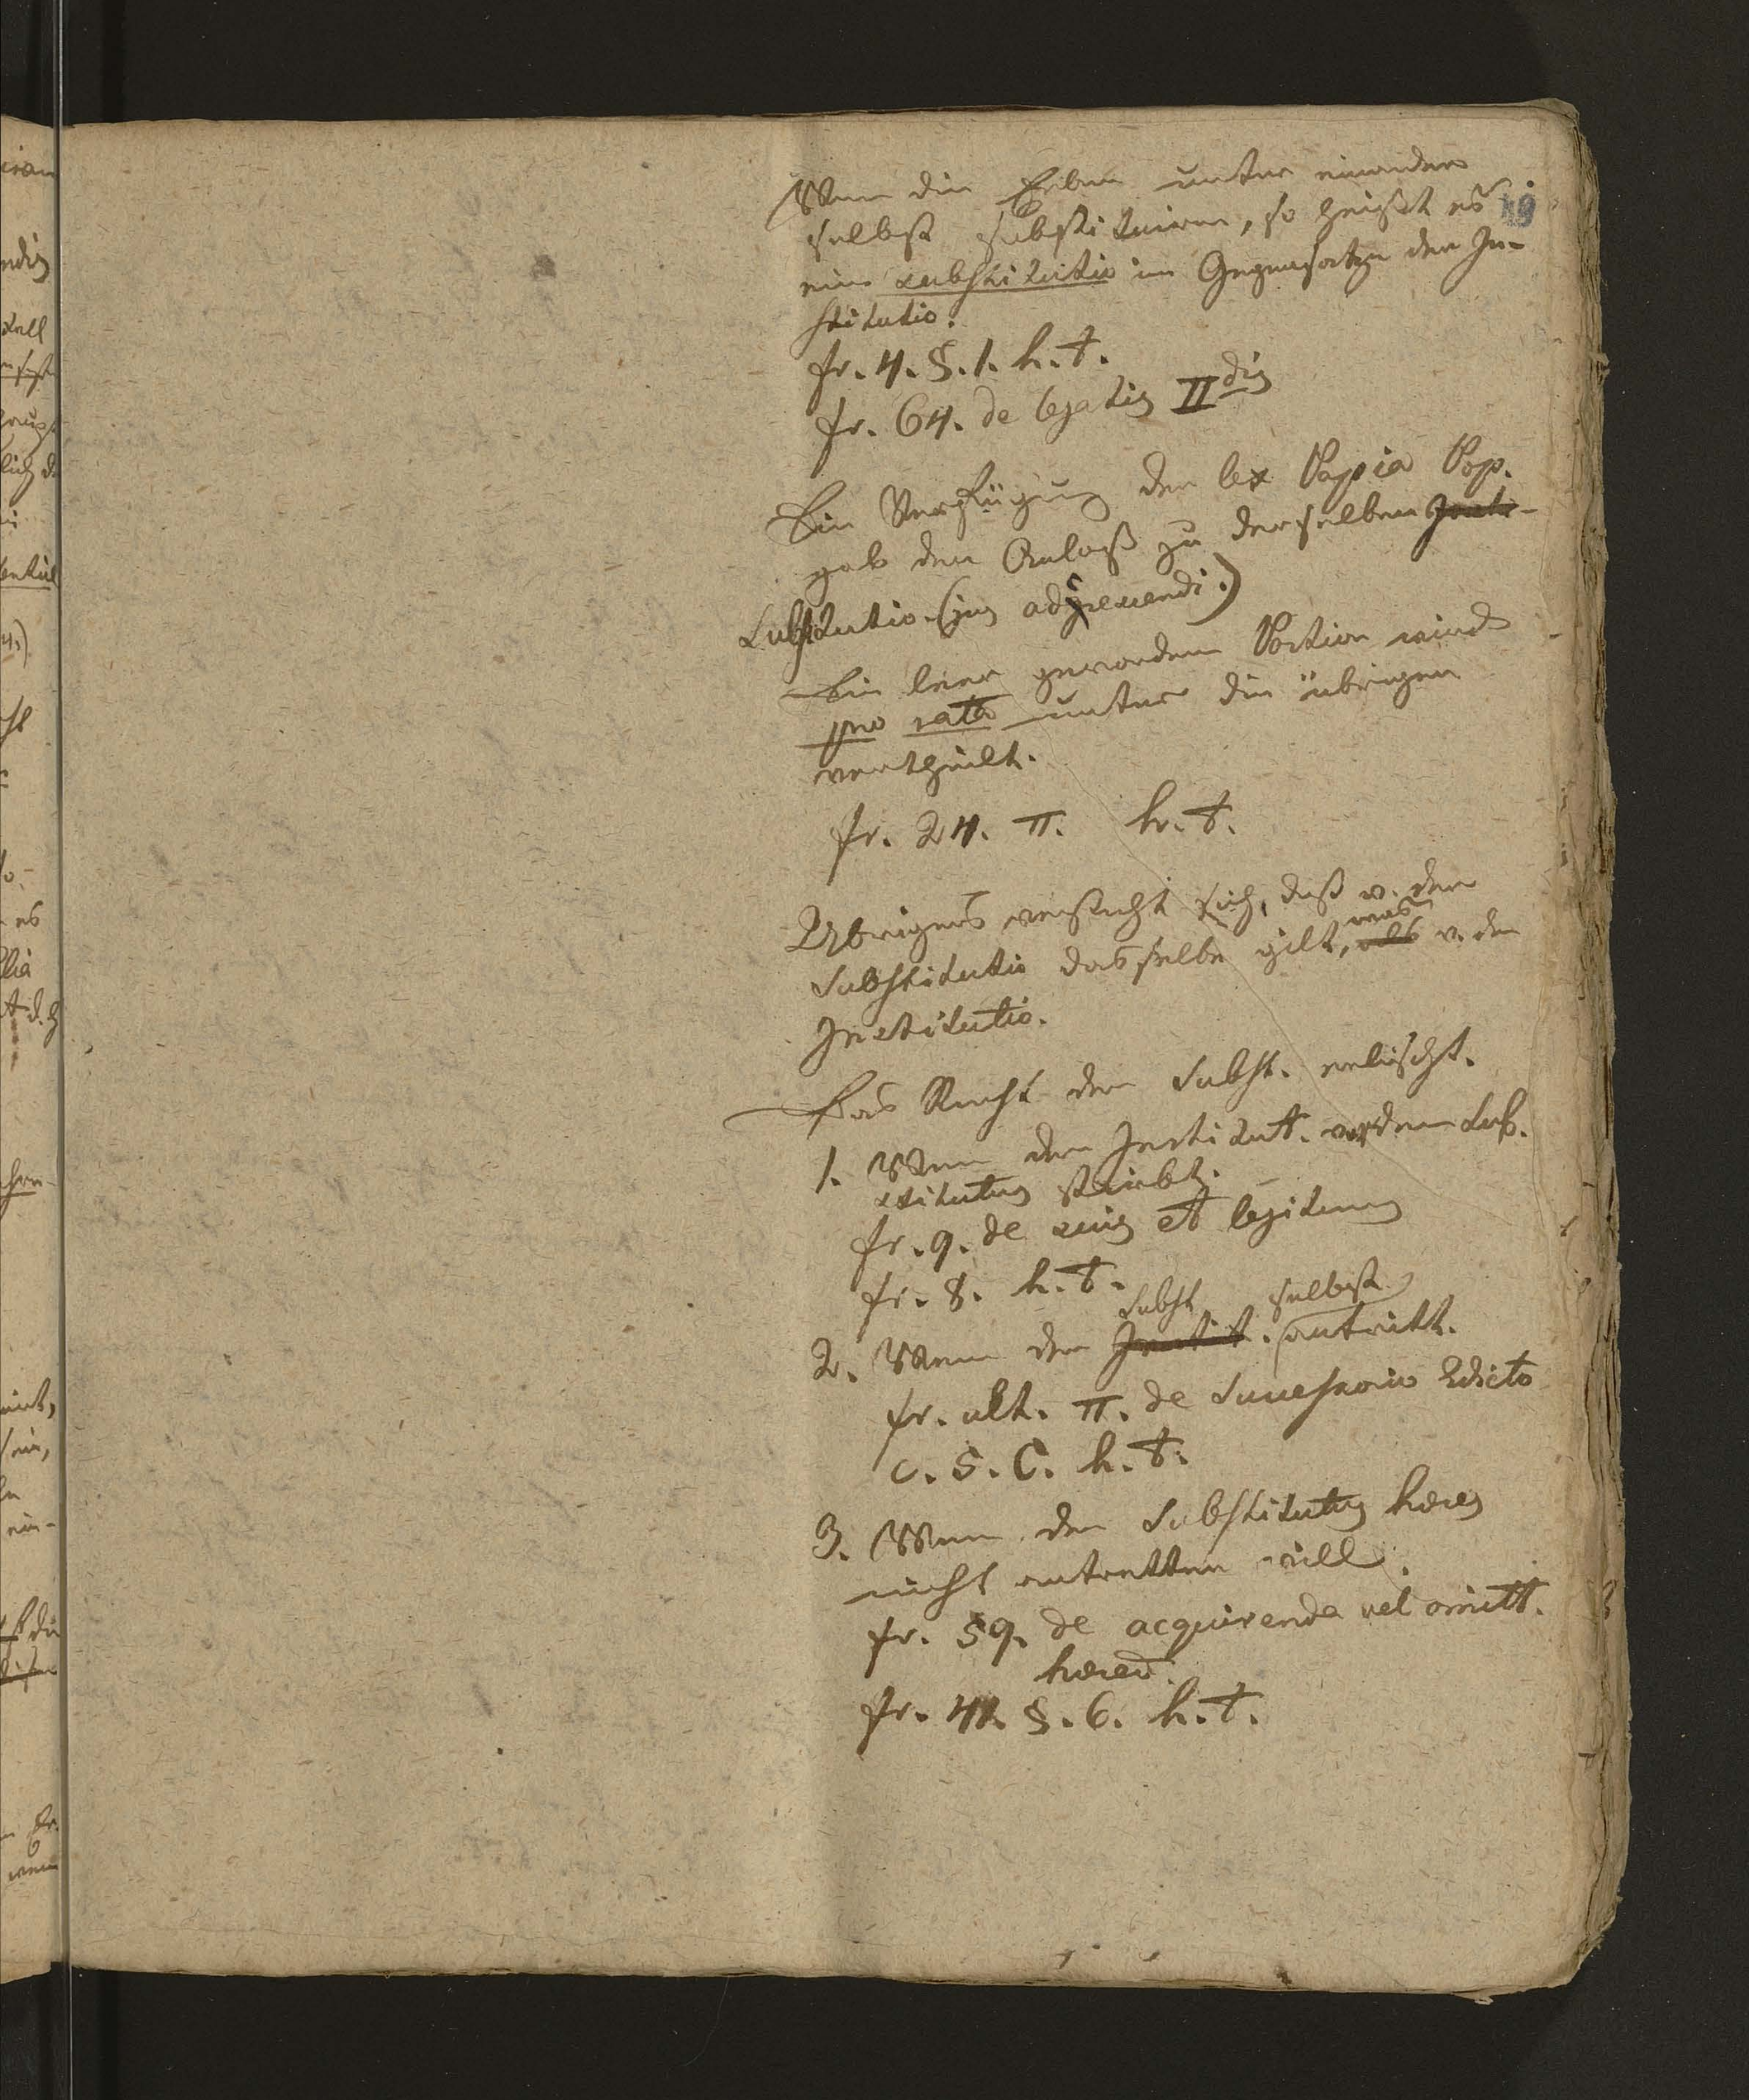 Wenn die Erben unter einander
selbst substituiren, so heißt es
19
eine substitutio im Gegensatze der In-
stitutio.
fr. 4. §. 1. h. t.
fr. 64. de legatis II dis
Die Verfügung der lex Papia Pop.
gab den Anlaß zu derselben Insti-
Substitutio. (jus adcrescendi.)
Die leer gewordene Portion wird
pro rata unter die übrigen
vertheilt.
fr. 24. π. h. t.
Übrigens versteht sich, daß v. der
was
Substitutio dasselbe gilt, als v. der
Institutio.
Das Recht der Subst. erlischt.
1. Wenn der Institut. vor dem Sub-
stitutus stirbt.
fr. 9. de suis et legitimis
fr. 8. h. t.
Subst selbst
2. Wenn der Instit. antritt.
fr. ult. π. de Successorio Edicto
c. 5. C. h. t.
3. Wenn der Substitutus heres
nicht antretten will.
fr. 59. de acquirenda vel omitt.
hered.
fr. 41. §. 6. h. t.